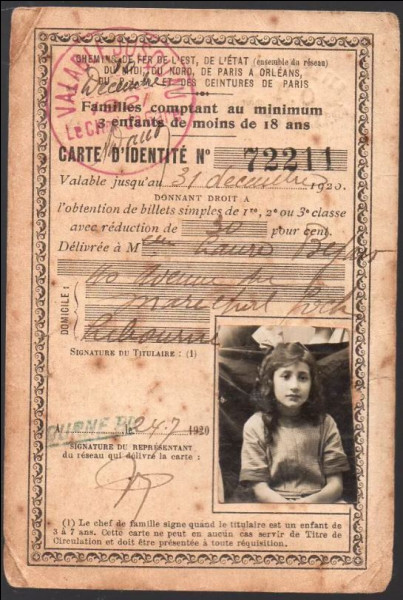 CHEMINS DE FER DE L'EST, DE L'ÉTAT (ensemble du réseau)
DU MIDI, DU NORD, DE PARIS A ORLÉANS,
DU P.L.M. ET DES CEINTURES DE PARIS
VALABLE JUSQU'AU
Décembre
Familles comptant au minimum
3 enfants de moins de 18 ans
CARTE D'IDENTITÉ No 72211
Valable jusqu'au 31 décembre 1920.
DONNANT DROIT A
l'obtention de billets simples de 1re, 2e ou 3e classe
avec réduction de 30 pour cent.
Délivrée à M Laure
DOMICILE : 40 avenue du
maréchal Foch
Libourne
SIGNATURE DU TITULAIRE : (1)
A LIBOURNE le 24-7 1920
SIGNATURE DU REPRÉSENTANT
du réseau qui délivre la carte :
(1) Le chef de famille signe quand le titulaire est un enfant de
3 à 7 ans. Cette carte ne peut en aucun cas servir de Titre de
Circulation et doit être présentée à toute réquisition.